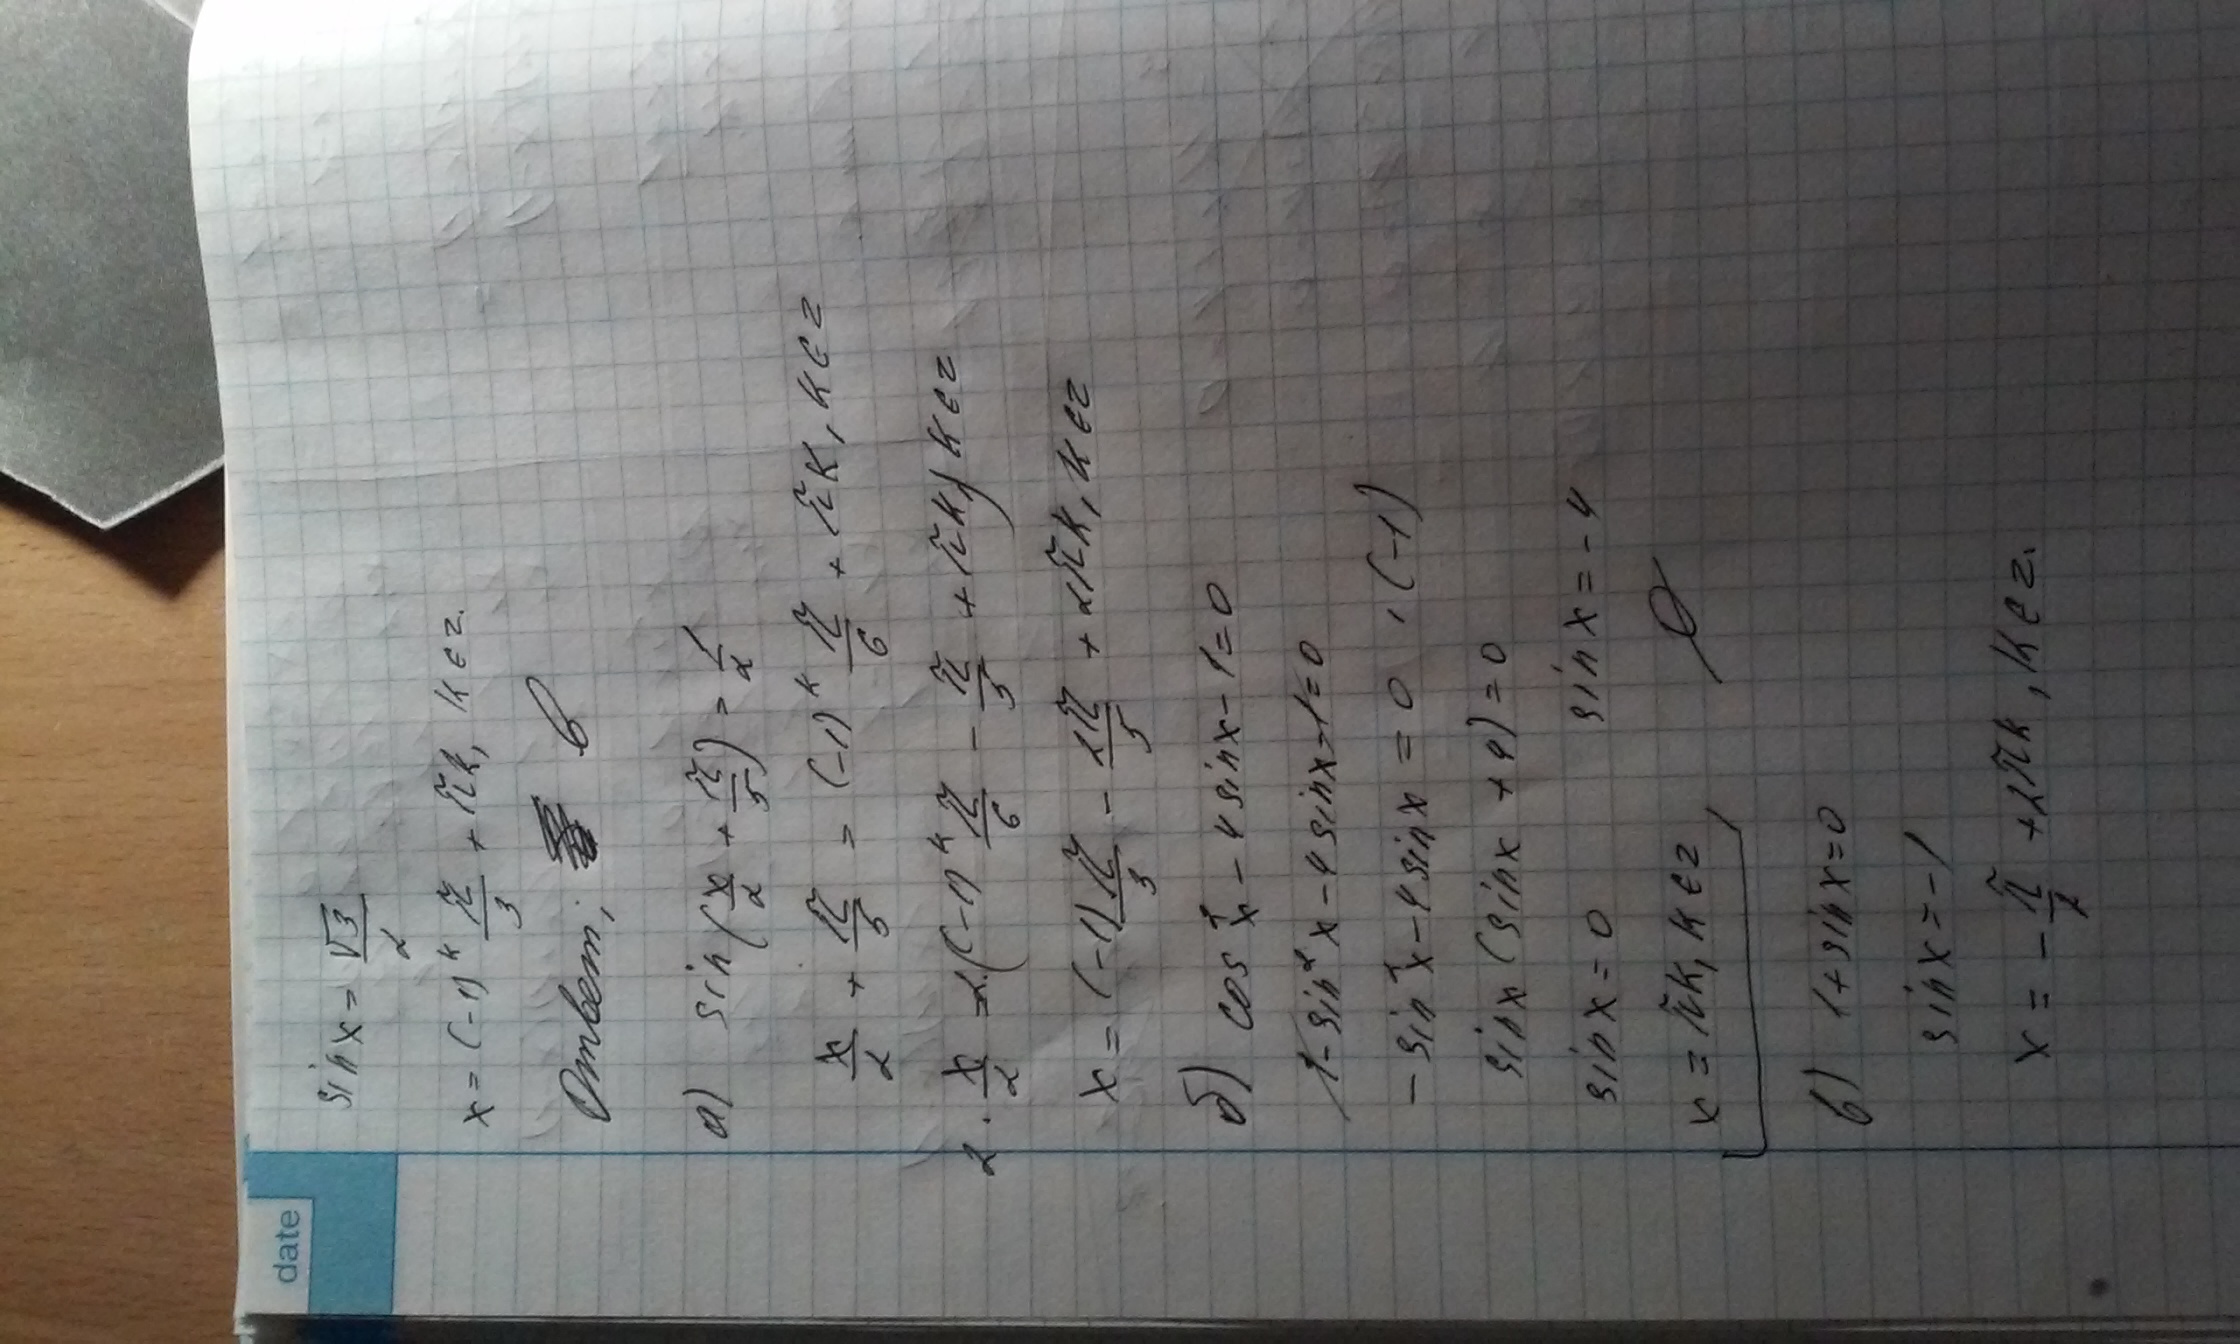 date
sin x = √3/2
x = (-1)^k π/3 + πk, k ∈ z.
Ответ: в
а) sin(x/2 + π/5) = 1/2
x/2 + π/5 = (-1)^k π/6 + πk, k ∈ z
2 · x/2 = 2·(-1)^k π/6 - π/5 + πk) k ∈ z
x = (-1) π/3 - 2π/5 + 2πk, k ∈ z
б) cos²x - 4 sin x - 1 = 0
1 - sin²x - 4 sin x - 1 = 0
- sin²x - 4 sin x = 0 , (-1)
sin x (sin x + 4) = 0
sin x = 0 sin x = -4
x = πk, k ∈ z ∅
в) 1 + sin x = 0
sin x = -1
x = - π/2 + 2πk, k ∈ z.